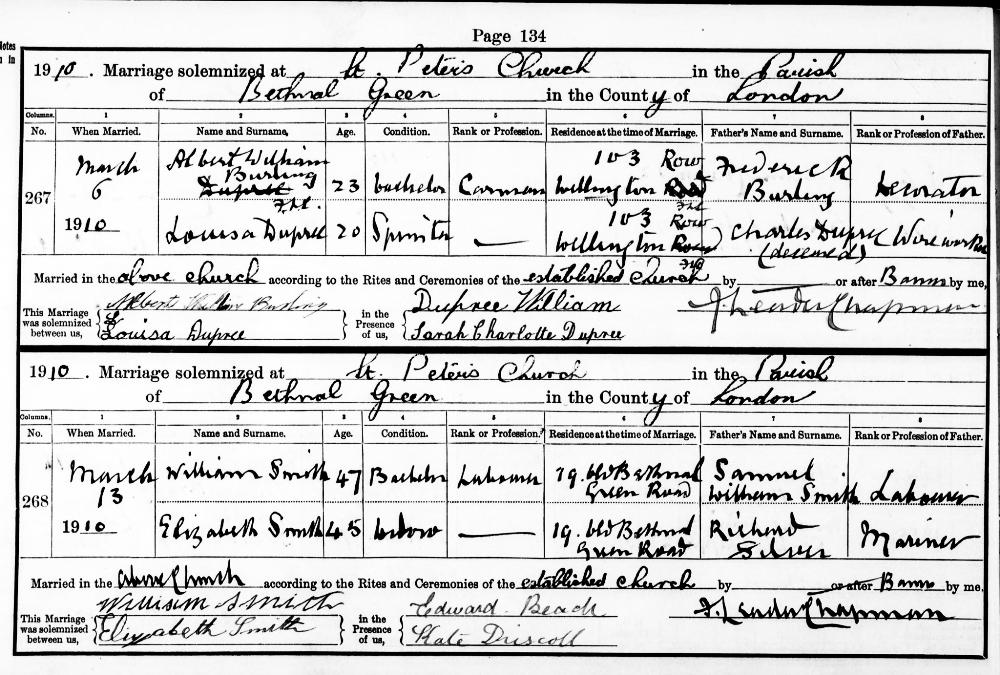 Page 134
Notes
in
1910. Marriage solemnized at St. Peter's Church in the Parish
of Bethnal Green in the County of London
Columns. 1 2 3 4 5 6 7 8
No. When Married. Name and Surname. Age. Condition. Rank or Profession. Residence at the time of Marriage. Father's Name and Surname. Rank or Profession of Father.
267 March 6 1910
Albert William Burling Dupree 23 bachelor Carman 103 Wellington Row Road Frederick Burling Decorator
Louisa Dupree 20 Spinster — 103 Wellington Row Road Charles Dupree (deceased) Wireworker
Married in the above church according to the Rites and Ceremonies of the established church by or after Banns by me,
This Marriage was solemnized between us, Albert William Burling in the Presence of us, Dupree William J. Leader Chapman
Louisa Dupree Sarah Charlotte Dupree
1910. Marriage solemnized at St. Peter's Church in the Parish
of Bethnal Green in the County of London
Columns. 1 2 3 4 5 6 7 8
No. When Married. Name and Surname. Age. Condition. Rank or Profession. Residence at the time of Marriage. Father's Name and Surname. Rank or Profession of Father.
268 March 13 1910
William Smith 47 Bachelor Labourer 19. Old Bethnal Green Road Samuel William Smith Labourer
Elizabeth Smith 45 widow — 19. Old Bethnal Green Road Richard Mariner
Married in the above Church according to the Rites and Ceremonies of the established church by or after Banns by me,
This Marriage was solemnized between us, William Smith in the Presence of us, Edward Beach J. Leader Chapman
Elizabeth Smith Kate Driscoll